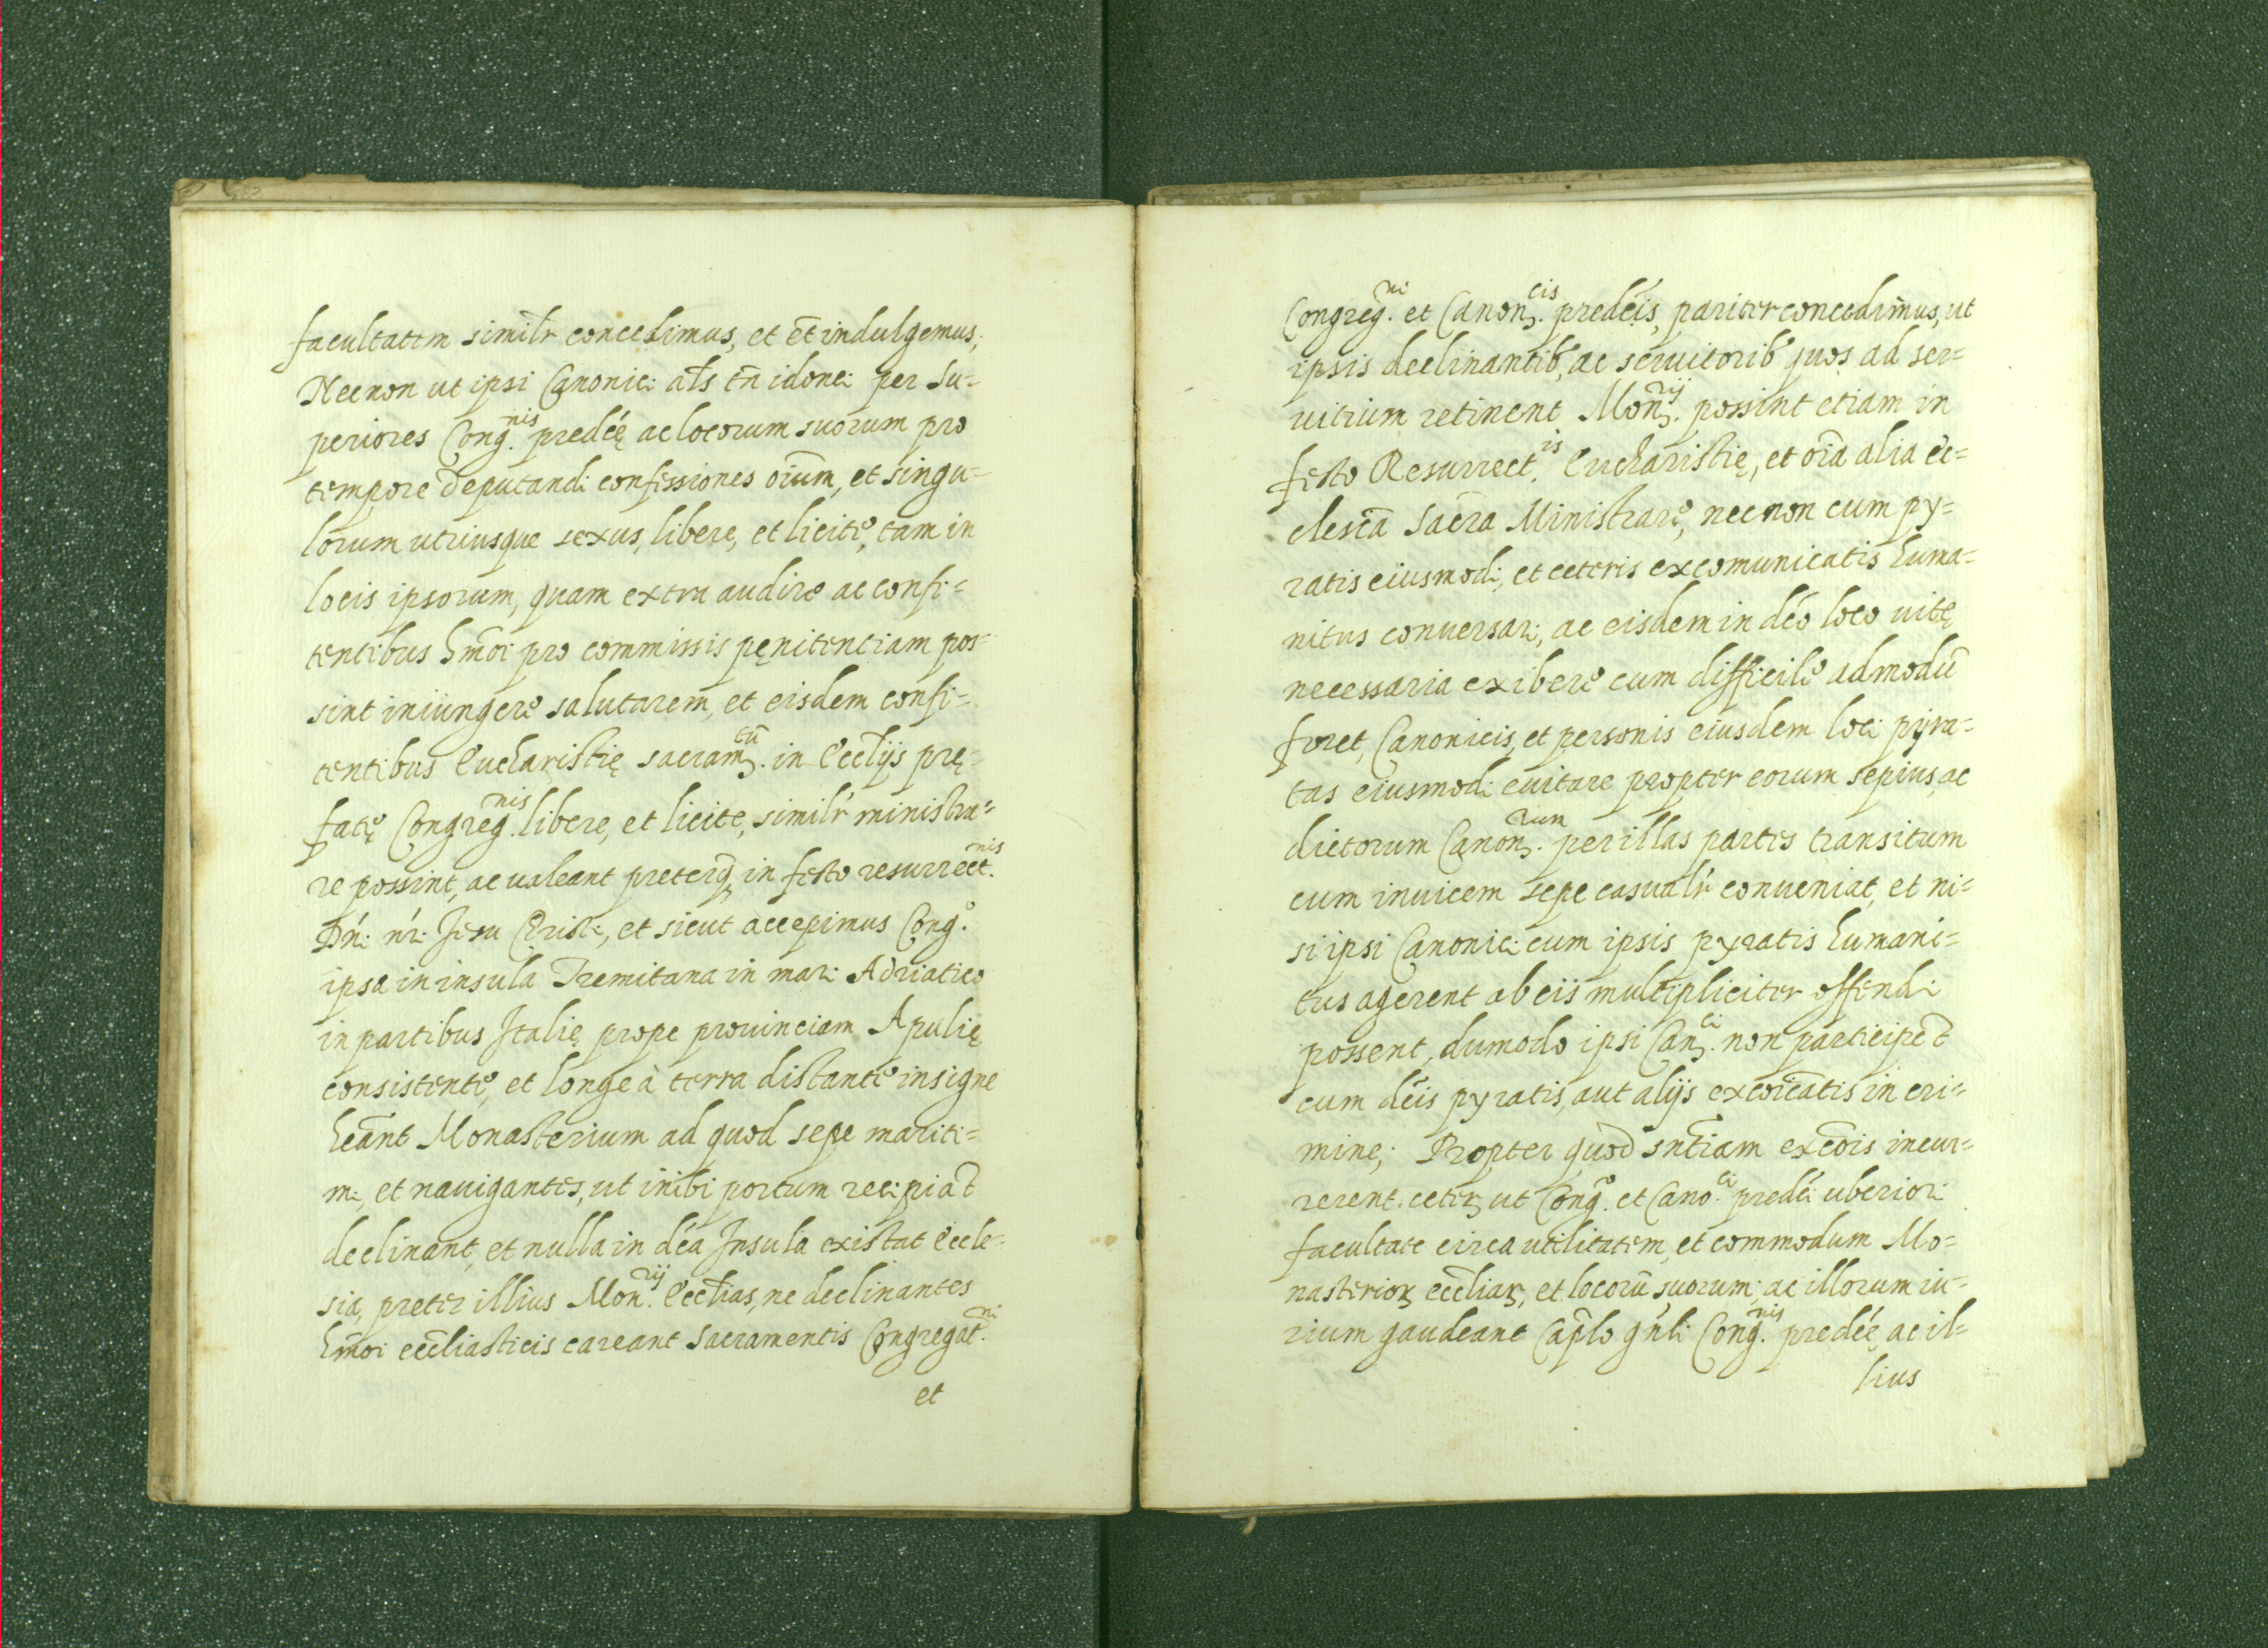 facultatem simil̃r concedimus, et et̃ indulgemus;
Necnon ut ipsi Canonici al̃s tñ idonei per Su=
periores Cong.ⁿⁱˢ predċę ac locorum suorum pro
tempore deputandi confessiones oĩum, et singu=
lorum utriusque sexus, libere, et licite, tam in
locis ipsorum, quam extra audire ac confi=
tentibus hm̃oi pro commissis pęnitentiam pos=
sint iniungere salutarem, et eisdem confi=
tentibus Eucharistię sacram.ᵗũ in Eccl̃ijs prę=
fatę Congreg.ⁿⁱˢ libere, et licite, simil̃r ministra=
re possint, ac ualeant preterq̃ in festo resurrect.ⁿⁱˢ
Dñi ñri Jesu Christi, et sicut accepimus Cong.º
ipsa in insula Tremitana in mari Adriatico
in partibus Italię prope prouinciam Apulię
consistente, et longe à terra distante insigne
heãnt Monasterium ad quod sepe mariti=
mi, et nauigantes, ut inibi portum recipiãt
declinant, et nulla in dċa Insula existat Eccle=
sia, preter illius Mon.ʳⁱʲ Eccl̃ias, ne declinantes
hm̃oi eccl̃iasticis careant Sacramentis Congregat.ⁿⁱ
et
Congreg.ⁿⁱ et Canon.ᶜⁱˢ predċis, pariter concedim̃us, ut
ipsis declinantib', ac seruitorib' quos ad ser=
uitium retinent Mon.ʳⁱʲ possint etiam in
festo Resurrect.ⁱˢ Eucharistię, et oĩa alia ec=
clesĩca Sacr̃a Ministrare, necnon cum py=
ratis eiusmodi, et ceteris excomunicatis huma=
nitus conuersari, ac eisdem in dċo loco uitę
necessaria exibere cum difficile admodũ
foret, Canonicis, et personis eiusdem loci pyra=
tas eiusmodi euitare propter eorum sepius, ac
dictorum Canon.ʳᵘᵐ per illas partes transitum
cum inuicem sepe casual̃r conueniat, et ni=
si ipsi Canonici cum ipsis pyratis humani=
tus agerent ab eiis multipliciter offendi
possent, dumodo ipsi Can.ᶜⁱ non participẽt
cum dċis pyratis, aut alijs excoĩcatis in cri=
mine; Propter quod sñtiam excõis incur=
rerent. ceterũ ut Cong.º et Cano.ᶜⁱ predċi uberiori
facultate circa utilitatem, et commodum Mo=
nasterioꝝ eccl̃iaꝝ, et locorũ suorum; ac illorum iu=
rium gaudeant Cap̃lo gñli Cong.ⁿⁱˢ predċę, ac il=
lius